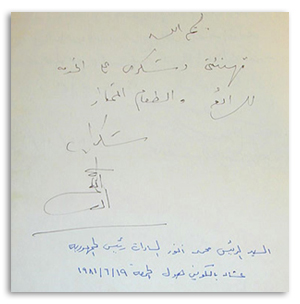 بسم الله
تهنئتى وشكرى على الخدمه
الرائع والطعام الممتاز
شكرا
السيد الرئيس محمد أنور السادات رئيس الجمهورية
عشاء بالكلونى يوم الجمعة ١٩/٦/١٩٨١